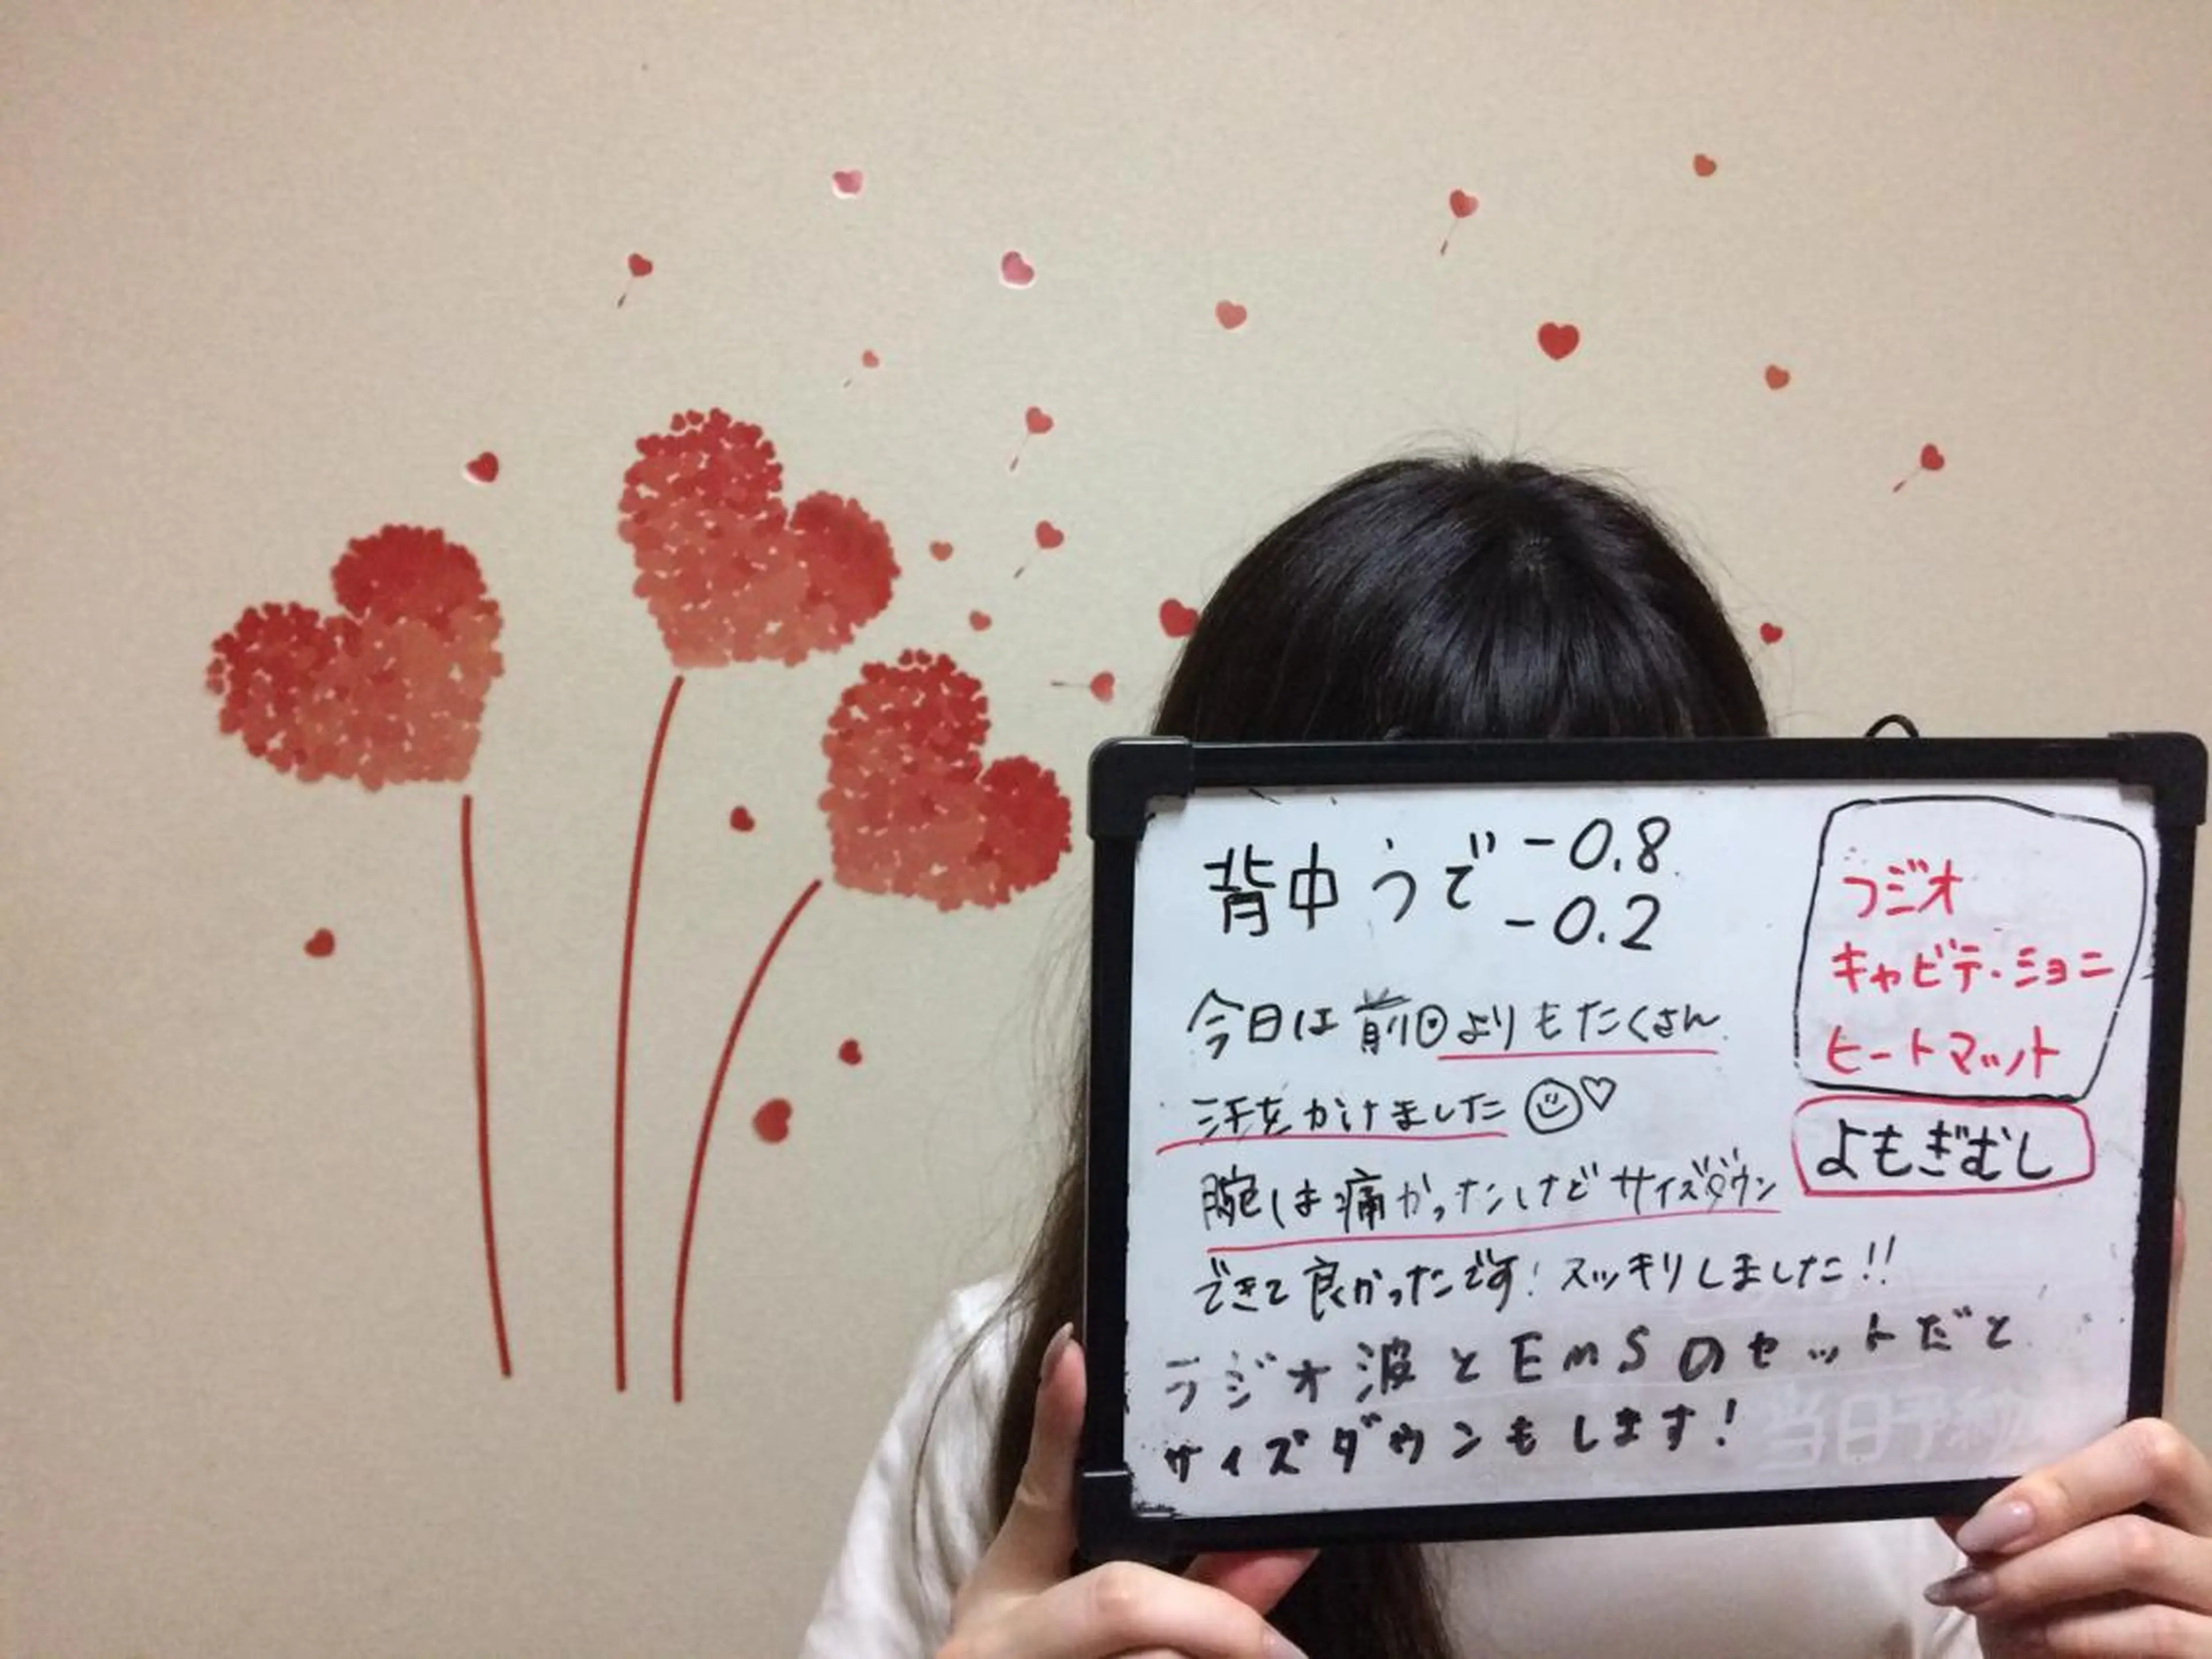 背中うで -0.8
-0.2
今日は前回よりもたくさん
汗をかけました
腕は痛かったけどサイズダウン
できて良かったです!スッキリしました!!
ラジオ波とEMSのセットだと
サイズダウンもします!
ラジオ
キャビテーション
ヒートマット
よもぎむし
当日予約